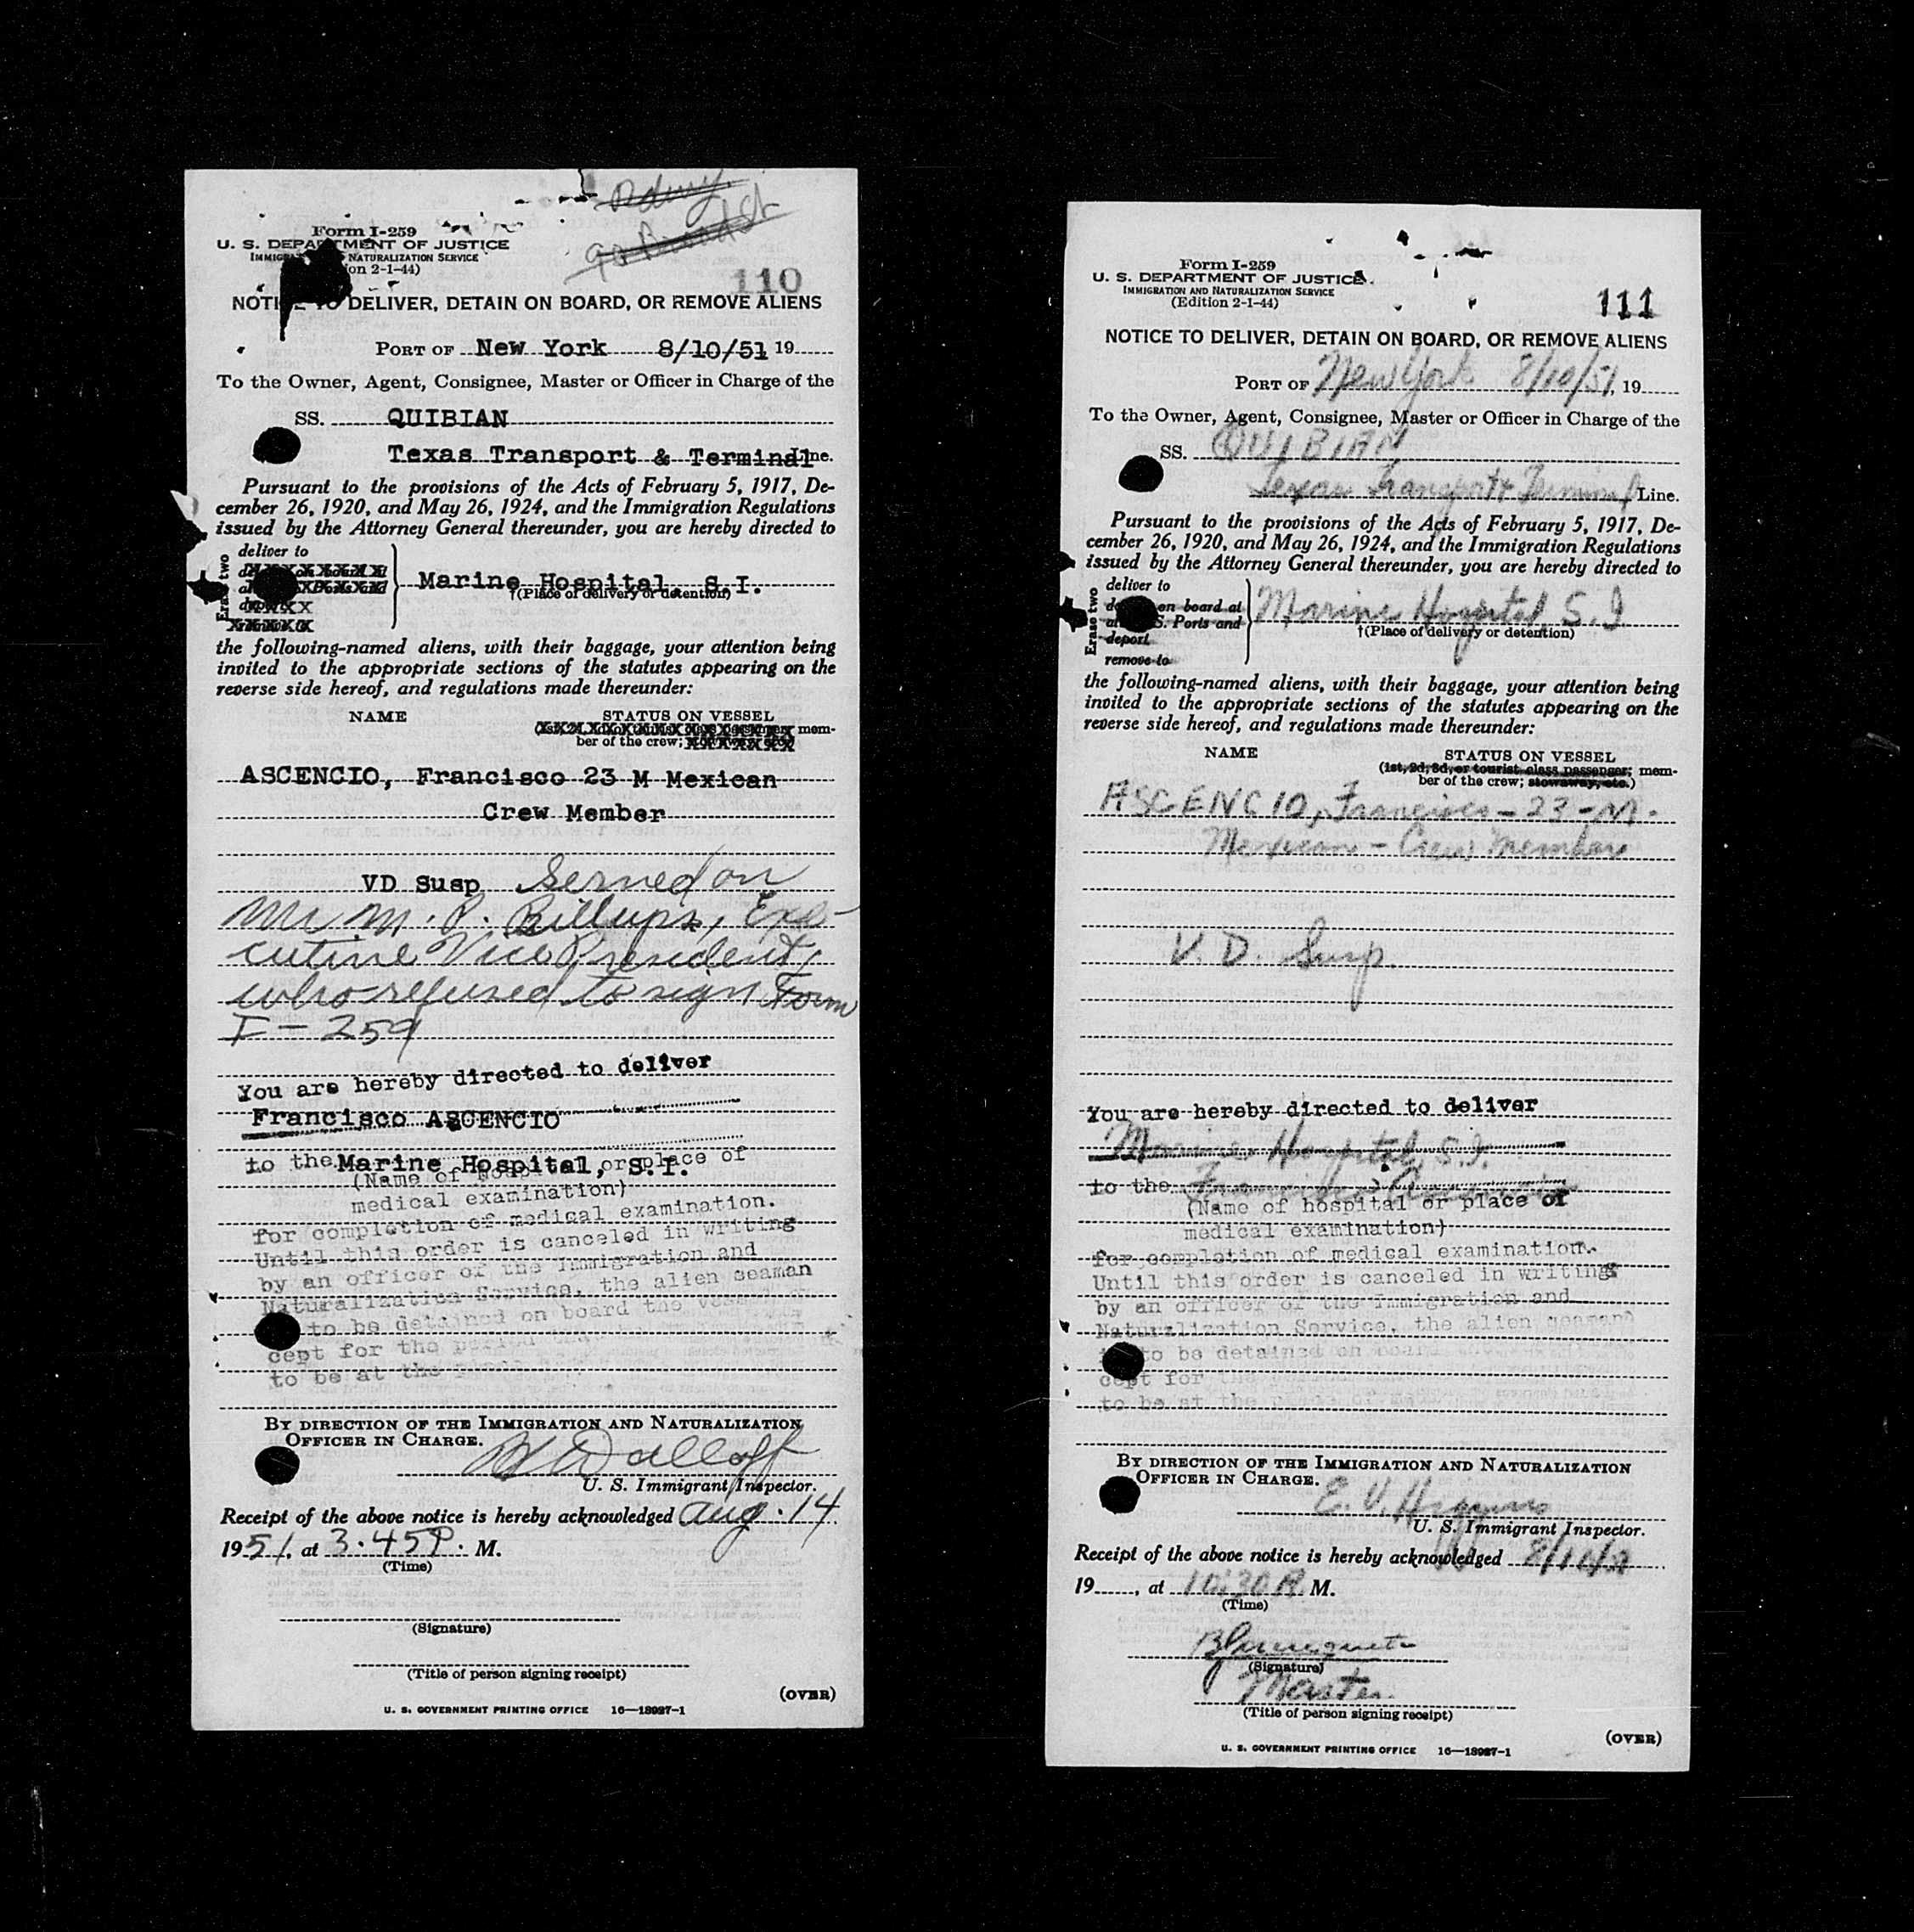 Form I-259
U. S. DEPARTMENT OF JUSTICE
NATURALIZATION SERVICE
2-1-44)
110
NOTICE TO DELIVER, DETAIN ON BOARD, OR REMOVE ALIENS
PORT OF New York 8/10/51 19
To the Owner, Agent, Consignee, Master or Officer in Charge of the
SS. QUIBIAN
Texas Transport & Terminal Line.
Pursuant to the provisions of the Acts of February 5, 1917, De-
cember 26, 1920, and May 26, 1924, and the Immigration Regulations
issued by the Attorney General thereunder, you are hereby directed to
Erase two
deliver to
Marine Hospital, S.I.
†(Place of delivery or detention)
the following-named aliens, with their baggage, your attention being
invited to the appropriate sections of the statutes appearing on the
reverse side hereof, and regulations made thereunder:
NAME STATUS ON VESSEL
mem-
ber of the crew;
ASCENCIO, Francisco 23 M Mexican
Crew Member
VD Susp Served on
Mr M. P. Billups, Exe-
cutive Vice President,
who refused to sign Form
I-259
You are hereby directed to deliver
Francisco ASCENCIO
to the Marine Hospital, S.I.
(Name of hospital or place of
medical examination)
for completion of medical examination.
Until this order is canceled in writing
by an officer of the Immigration and
Naturalization Service, the alien seaman
to be detained on board the vessel
cept for the period
to be at the place
BY DIRECTION OF THE IMMIGRATION AND NATURALIZATION
OFFICER IN CHARGE.
U. S. Immigrant Inspector.
Receipt of the above notice is hereby acknowledged Aug. 14
1951, at 3.45 P. M.
(Time)
(Signature)
(Title of person signing receipt)
(OVER)
U. S. GOVERNMENT PRINTING OFFICE 16—18927-1
Form I-259
U. S. DEPARTMENT OF JUSTICE
IMMIGRATION AND NATURALIZATION SERVICE
(Edition 2-1-44)
111
NOTICE TO DELIVER, DETAIN ON BOARD, OR REMOVE ALIENS
PORT OF New York 8/10/51, 19
To the Owner, Agent, Consignee, Master or Officer in Charge of the
SS. QUIBIAN
Texas Transport & Terminal Line.
Pursuant to the provisions of the Acts of February 5, 1917, De-
cember 26, 1920, and May 26, 1924, and the Immigration Regulations
issued by the Attorney General thereunder, you are hereby directed to
Erase two
deliver to
on board at
S. Ports and
deport
remove to
Marine Hospital, S.I
†(Place of delivery or detention)
the following-named aliens, with their baggage, your attention being
invited to the appropriate sections of the statutes appearing on the
reverse side hereof, and regulations made thereunder:
NAME STATUS ON VESSEL
(1st, 2d, 3d, or tourist class passenger; mem-
ber of the crew; stowaway, etc.)
ASCENCIO, Francisco - 23 - M.
Mexican - Crew Member
V. D. Susp.
You are hereby directed to deliver
Marine Hospital, S.I.
to the Francisco Ascencio
(Name of hospital or place of
medical examination)
for completion of medical examination.
Until this order is canceled in writing
by an officer of the Immigration and
Naturalization Service, the alien seaman
to be detained on board
cept for the
to be at the place of
BY DIRECTION OF THE IMMIGRATION AND NATURALIZATION
OFFICER IN CHARGE.
E. V. Higgins
U. S. Immigrant Inspector.
Receipt of the above notice is hereby acknowledged
19, at 10:30 A. M.
(Time)
(Signature)
Master
(Title of person signing receipt)
(OVER)
U. S. GOVERNMENT PRINTING OFFICE 16—18927-1